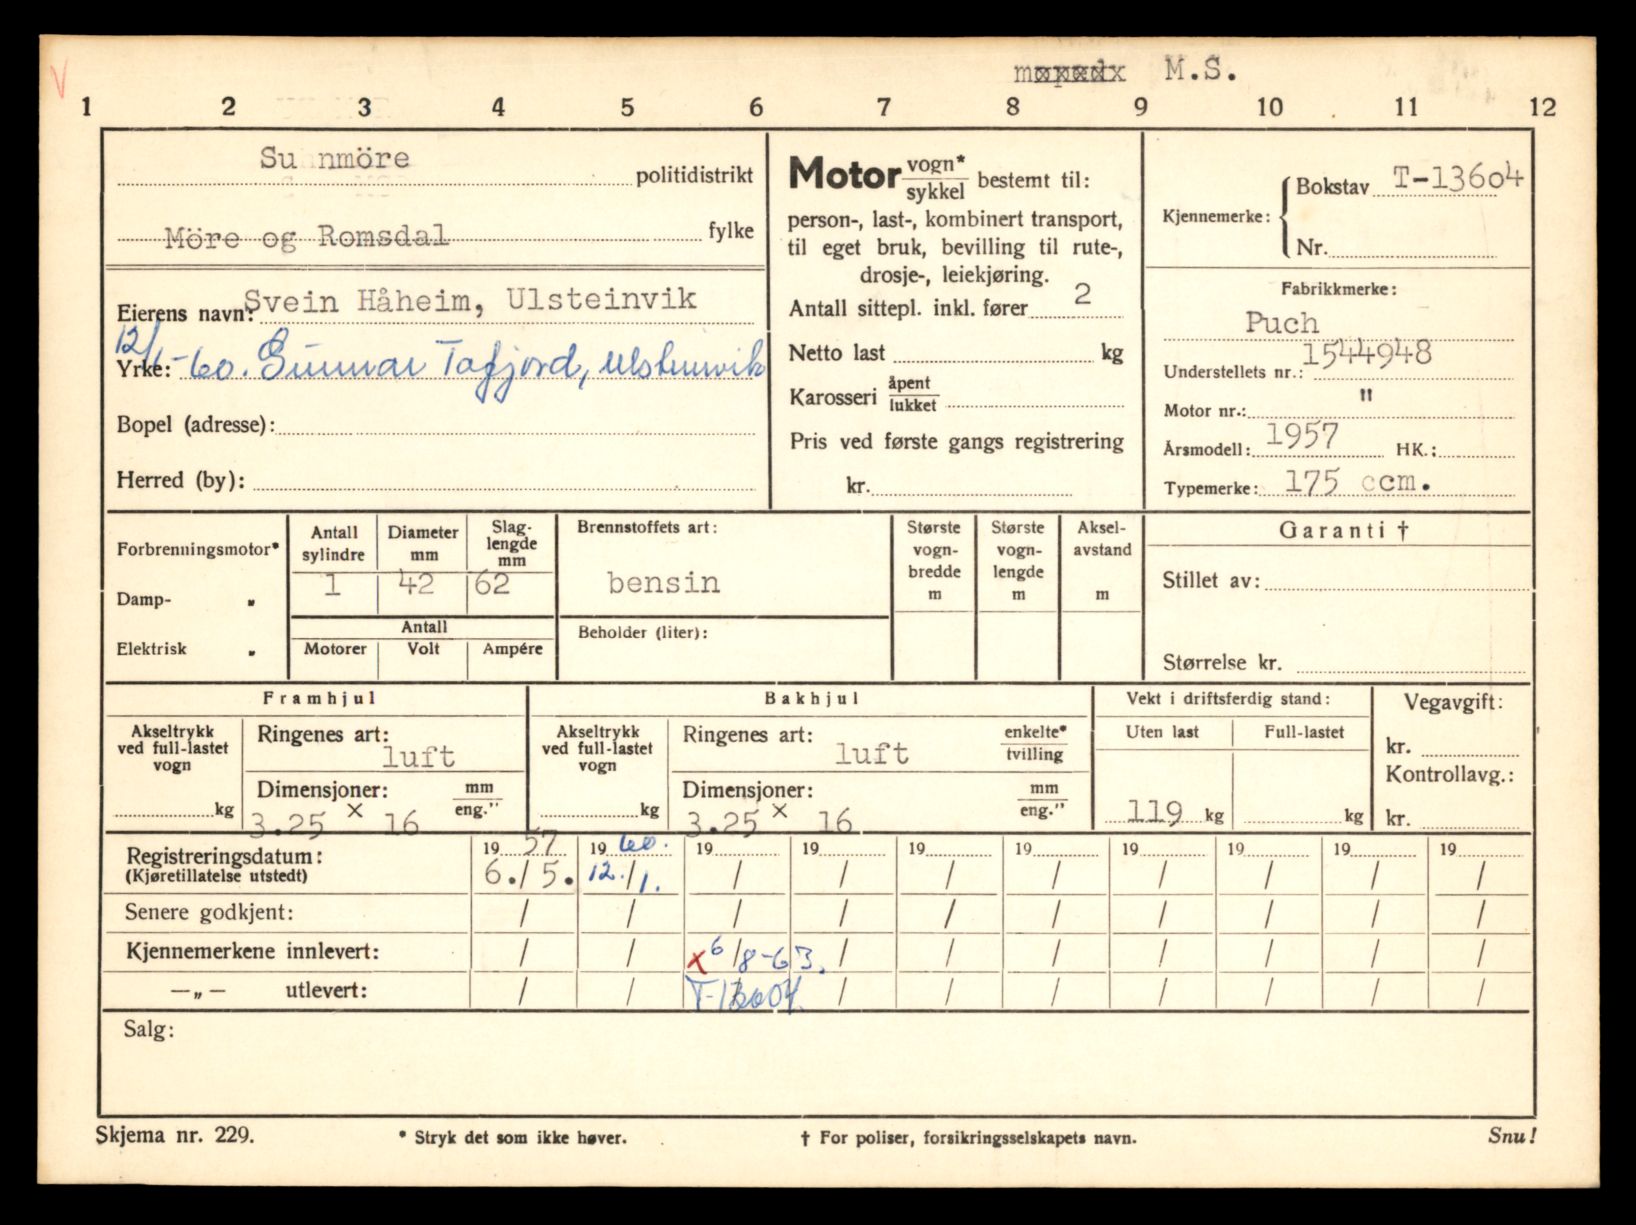 V
mopedx M.S.
1 2 3 4 5 6 7 8 9 10 11 12
Sunnmöre politidistrikt
Möre og Romsdal fylke
Eierens navn: Svein Håheim, Ulsteinvik
12/1-60. Gunnar Tafjord, Ulsteinvik
Yrke:
Bopel (adresse):
Herred (by):
Motor vogn* sykkel bestemt til:
person-, last-, kombinert transport,
til eget bruk, bevilling til rute-,
drosje-, leiekjøring.
Antall sittepl. inkl. fører 2
Netto last kg
Karosseri åpent lukket
Pris ved første gangs registrering
kr.
Kjennemerke: Bokstav T-13604
Nr.
Fabrikkmerke:
Puch
Understellets nr.: 1544948
Motor nr.: "
Årsmodell: 1957 HK.:
Typemerke: 175 ccm.
Forbrenningsmotor*
Damp- „
Elektrisk „
Antall sylindre Diameter mm Slag-lengde mm
1 42 62
Antall
Motorer Volt Ampére
Brennstoffets art:
bensin
Beholder (liter):
Største vogn-bredde m
Største vogn-lengde m
Aksel-avstand m
Garanti †
Stillet av:
Størrelse kr.
Framhjul
Akseltrykk ved full-lastet vogn
kg
Ringenes art:
luft
Dimensjoner: mm eng."
3.25 x 16
Bakhjul
Akseltrykk ved full-lastet vogn
kg
Ringenes art: enkelte* tvilling
luft
Dimensjoner: mm eng."
3.25 x 16
Vekt i driftsferdig stand:
Uten last Full-lastet
119 kg kg
Vegavgift:
kr.
Kontrollavg.:
kr.
Registreringsdatum: 19 57 19 60. 19 19 19 19 19 19 19 19
(Kjøretillatelse utstedt) 6./5. 12./1. / / / / / / / /
Senere godkjent: / / / / / / / / / /
Kjennemerkene innlevert: / / x 6/8-63. / / / / / / /
—„— utlevert: / / T-13004. / / / / / / /
Salg:
Skjema nr. 229. * Stryk det som ikke høver. † For poliser, forsikringsselskapets navn. Snu!